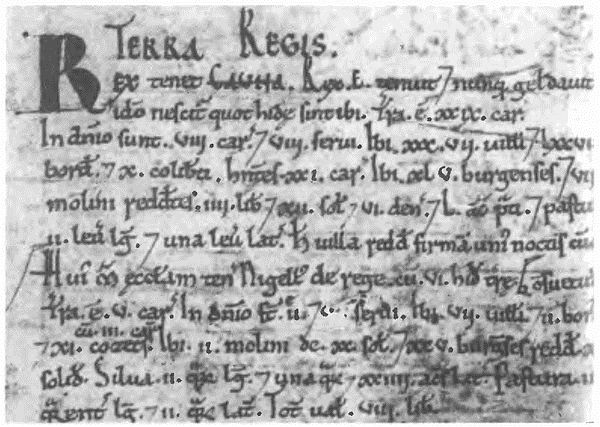 TERRA REGIS.
REX tenet CAUNA. Rex. E. tenuit 7 nunq̃ geldauit
ideo nescit᷑ quot hidę sint ibi. Tr̃a. ē. xxix. car̃
In dñio sunt. viii. car̃. 7 viii. serui. Ibi. xxx. vii. uilli 7 lxxvi
bord̃. 7 x. coliƀti. hñtes. xxi. car̃. Ibi. xl. v. burgenses. 7 vii
molini redd̃tes. iiii. liƀ 7 xii. sol̃ 7 vi. den̄. 7 l. ac̃ p̃ti. 7 pastu
ii. leũ lḡ. 7 una leũ lat̃. H̄ uilla redd̃ firmā uni᷒ noctis cū
Hui᷒ M̃ ecclam ten̄ Nigell᷒ de rege. cū. vi. hid̃ træ.
Tr̃a. ē. v. car̃. In dñio st̃. ii. 7 serui. Ibi. vii. uilli. 7 ii. bor
7 xi. cozets cū. iii. car̃. Ibi. ii. molini de. xx. sol̃. 7 xxv. burg̃ses redd̃. x
solid̃. Silua. ii. qz̃ lḡ. 7 una qz̃ 7 xxiiii. ac̃s lat̃. Pastura. ii
qrent̃ lḡ. 7 ii. qz̃ lat̃. Tot̃ ual̃. viii. liƀ.